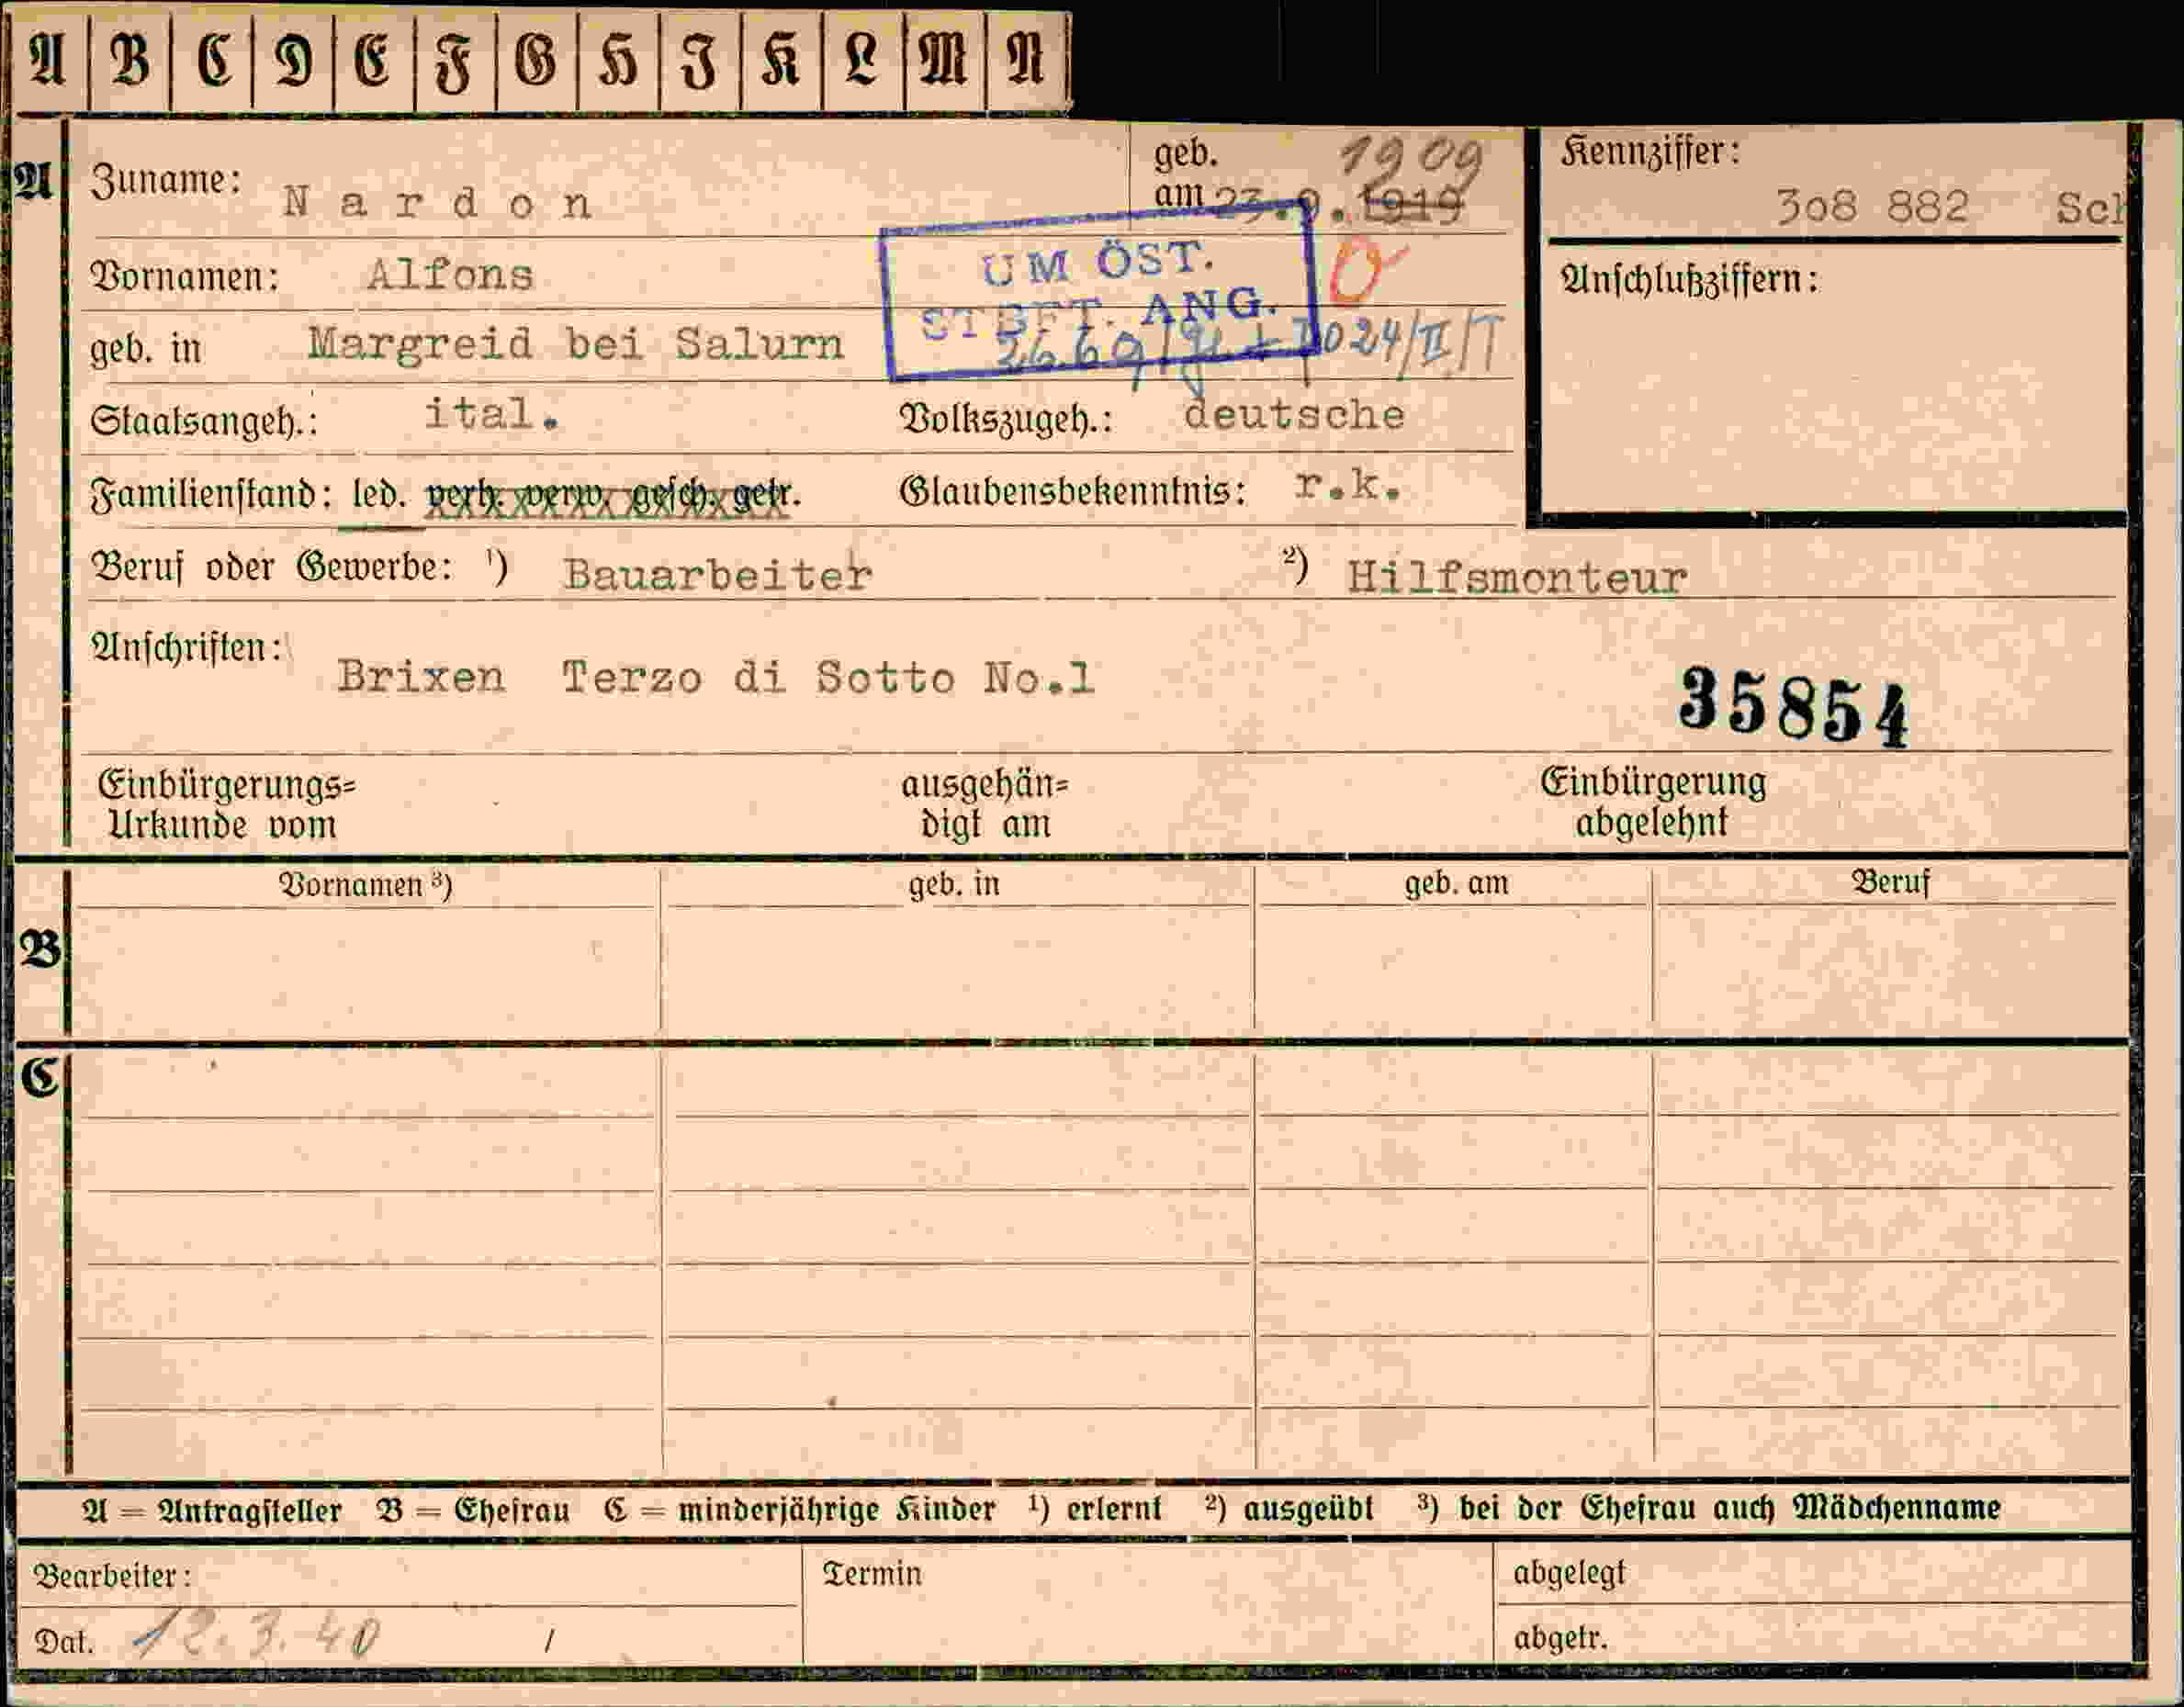 A B C D E F G H I K L M N
A
Zuname: Nardon
geb. am 23.9.1919 1909
Kennziffer: 308 882 Sch
Vornamen: Alfons
UM ÖST.
STBFT. ANG.
Anschlußziffern:
geb. in Margreid bei Salurn
1024/II/T
Staatsangeh.: ital. Volkszugeh.: deutsche
Familienstand: led. verh. verw. gesch. getr. Glaubensbekenntnis: r.k.
Beruf oder Gewerbe: ¹) Bauarbeiter ²) Hilfsmonteur
Anschriften: Brixen Terzo di Sotto No.1
35854
Einbürgerungs= Urkunde vom
ausgehän= digt am
Einbürgerung abgelehnt
B
Vornamen ³) geb. in geb. am Beruf
C
A = Antragsteller B = Ehefrau C = minderjährige Kinder ¹) erlernt ²) ausgeübt ³) bei der Ehefrau auch Mädchenname
Bearbeiter: Termin abgelegt
Dat. 12.3.40 / abgetr.